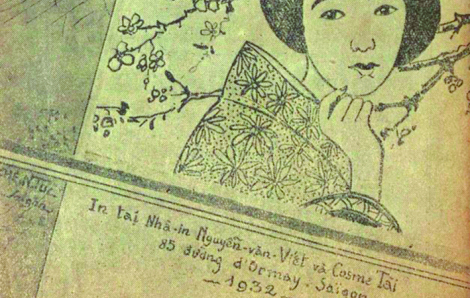 In tại Nhà-in Nguyễn-văn-Viết và Cosme Tài
85 đường d'Ormay. Saigon
— 1932.